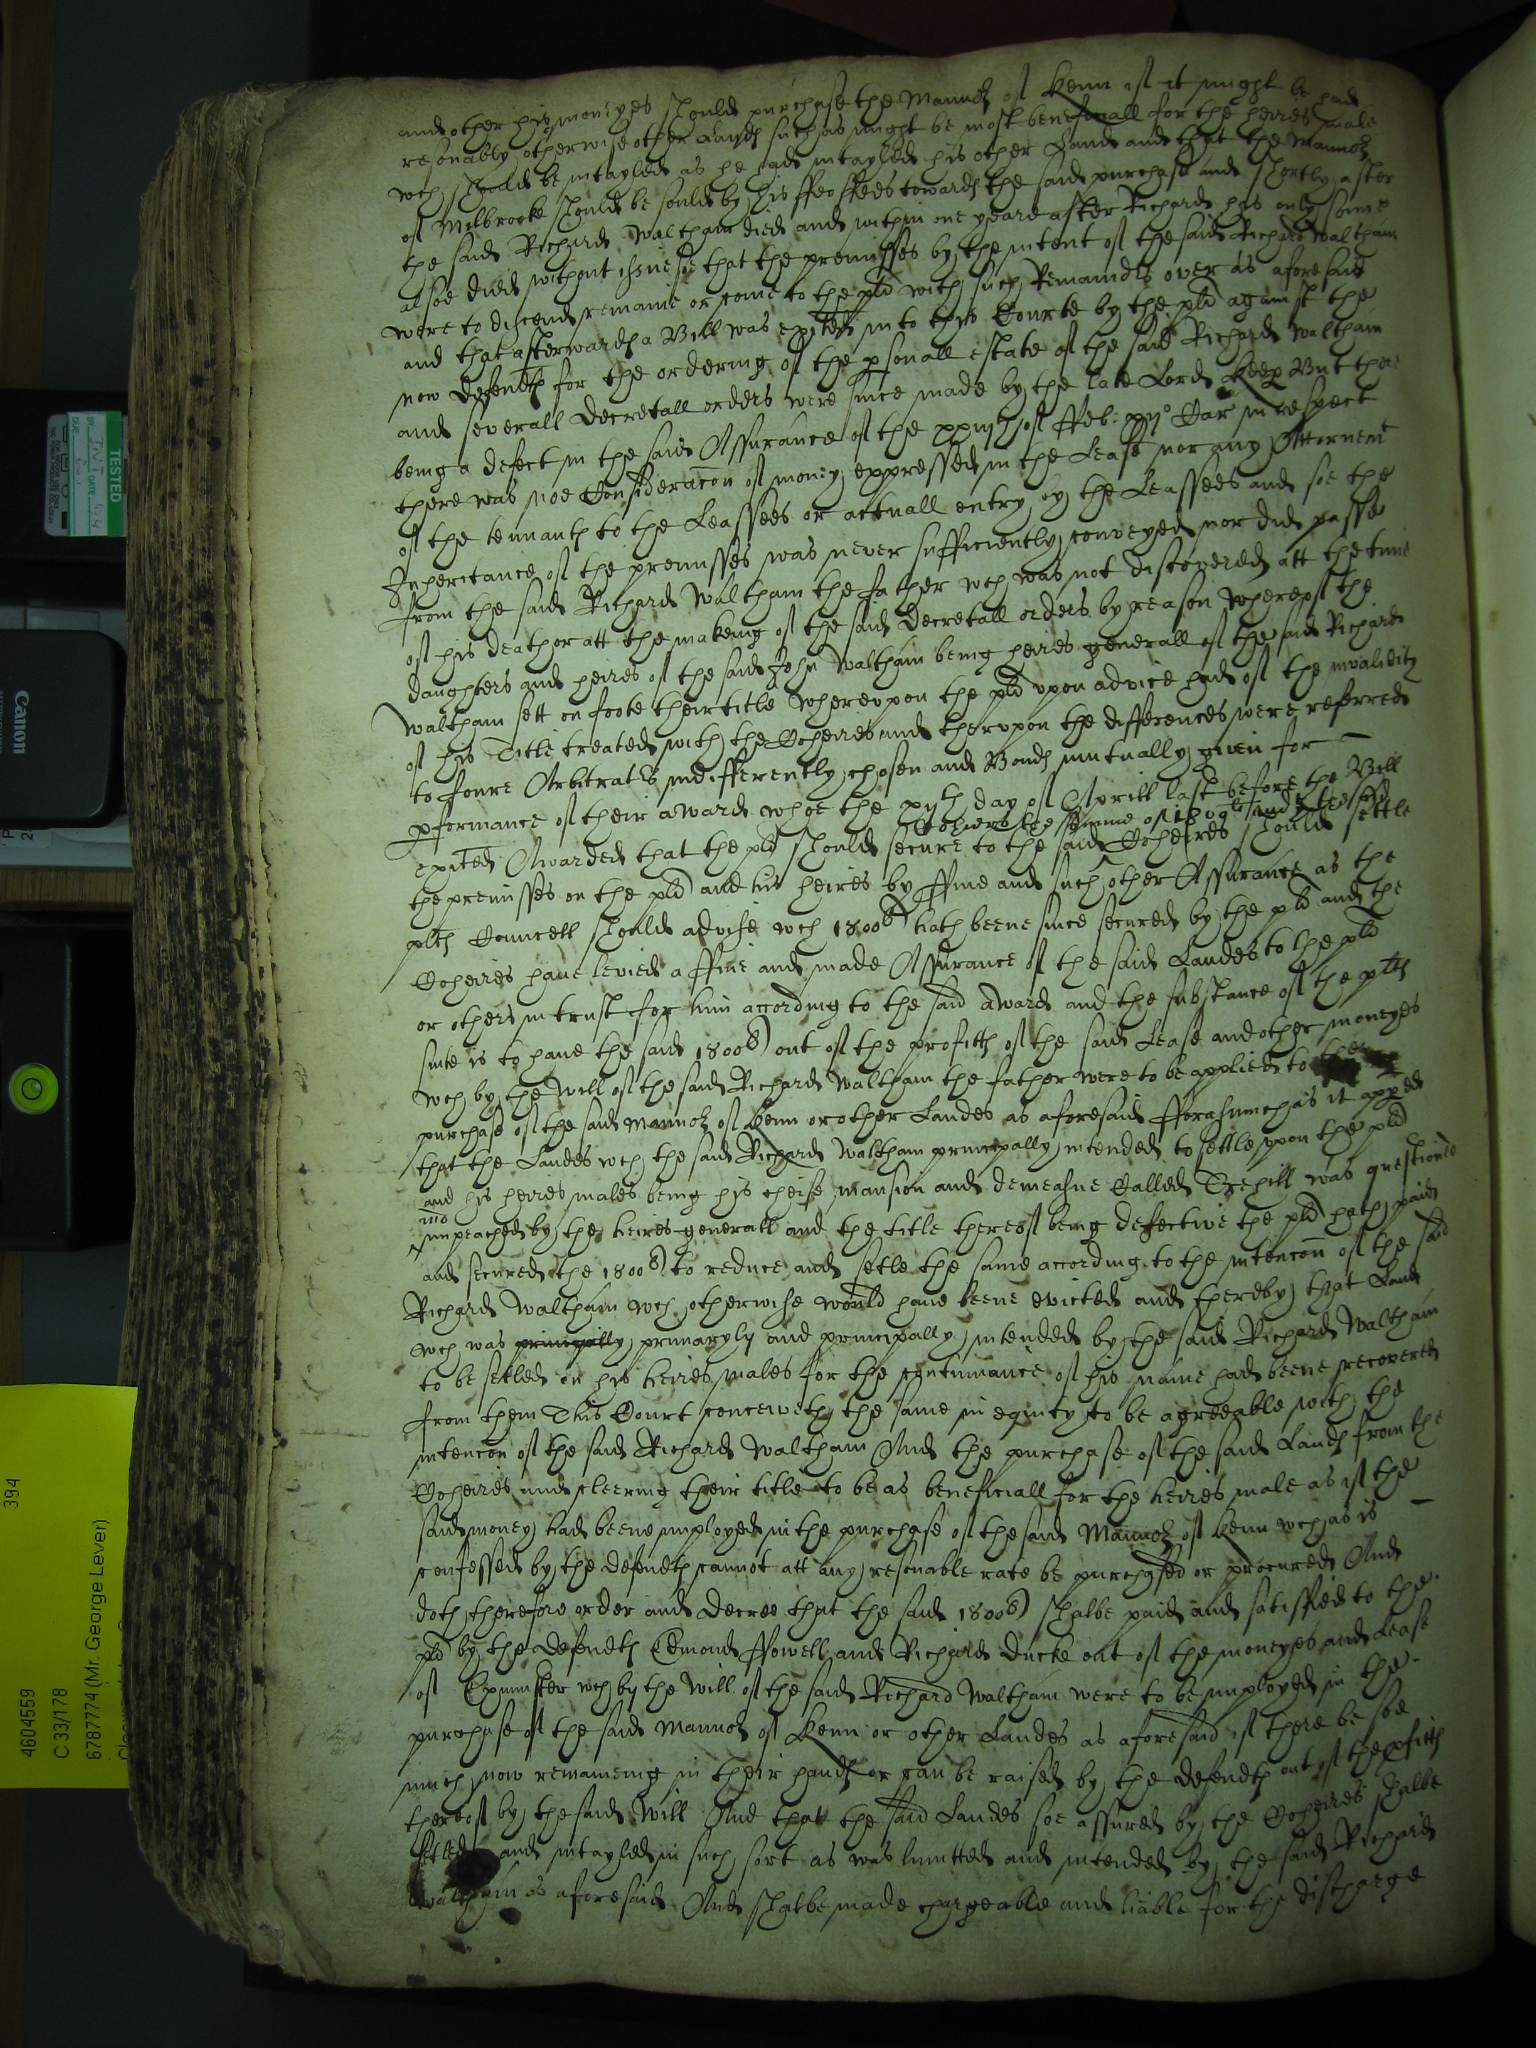 and other his moneyes should purchase the Mannor of Kenn if it might be had
resonably otherwise other Lands such as might be most beneficiall for the heires male
wch should be intayled as he had intayled his other Lands and that the Mannor
of Milbrooke should be sould by his ffeoffees towards the said purchase and shortly after
the said Richard Waltham died and within one yeare after Richard his only sonne
alsoe died without issue soe that the premisses by the intent of the said Richard Waltham
were to discend remaine or come to the plt with such Remainders over as aforesaid
and that afterwards a Bill was exited into this Courte by the plt against the
now defendts for the ordering of the psonall estate of the said Richard Waltham
and severall decretall orders were since made by the late Lord Keep But there
being a defect in the said Assurance of the xxvjth of ffeb: xvjo Car in respect
there was noe Consideracon of money expressed in the Lease nor any Attornemt
of the tennants to the Leassees or actuall entry by the Leassees and soe the
Inheritance of the premisses was never sufficiently conveyed nor did passe
from the said Richard Waltham the father wch was not discovered att the time
of his death or att the makeing of the said decretall orders by reason whereof the
daughters and heires of the said John Waltham being heires generall of the said Richard
Waltham sett on foote their title Whereupon the plt upon advice had of the invalidity
of his Title treated with the Coheires and thereupon the differences were referred
to foure Arbitrators indifferently chosen and Bonds mutually given for
pformance of their award whoe the xvth day of Aprill last before the Bill
exited Awarded that the plt should secure to the said Coheires the summe of 1800li and they should settle
the premisses on the plt and his heires by ffine and such other Assurance as the
plts Councell should advise wch 1800li hath beene since secured by the plt and the
Coheires have levied a ffine and made Assurance of the said Landes to the plt
or others in trust for him according to the said award and the substance of the plts
suite is to have the said 1800li out of the profitts of the said Lease and other moneyes
wch by the Will of the said Richard Waltham the father were to be applied to the
purchase of the said Mannor of Kenn or other Landes as aforesaid fforasmuch as it appeared
that the Landes wch the said Richard Waltham principally intended to settle upon the plt
and his heires males being his cheife mansion and demeasne Called Trehill was questioned
and impeached by the heires generall and the title thereof being defective the plt hath paid
and secured the 1800li to reduce and setle the same according to the intencon of the said
Richard Waltham wch otherwise would have beene evicted and thereby that Land
wch was principally primaryly and principally intended by the said Richard Waltham
to be setled on his heires males for the continuance of his name had beene recovered
from them This Court conceiveth the same in equity to be agreeable with the
intencon of the said Richard Waltham And the purchase of the said Lands from the
Coheires and cleering their title to be as beneficiall for the heires male as if the
said money had beene imployed in the purchase of the said Mannor of Kenn wch as is
confessed by the defendts cannot att any resonable rate be purchased or procured And
doth therefore order and decree that the said 1800li shalbe paid and satisfied to the
plt by the defendts Edmond ffowell and Richard Ducke out of the moneyes and Lease
of Exminster wch by the Will of the said Richard Waltham were to be imployed in the
purchase of the said Mannor of Kenn or other Landes as aforesaid if there be soe
much now remaineing in their hands or can be raised by the defendts out of the pfitts
thereof by the said Will And that the said Landes soe assured by the Coheires shalbe
setled and intayled in such sort as was limitted and intended by the said Richard
Waltham as aforesaid And shalbe made chargeable and liable for the discharge
TESTED
Canon
394
4604559
C 33/178
6787774 (Mr. George Lever)